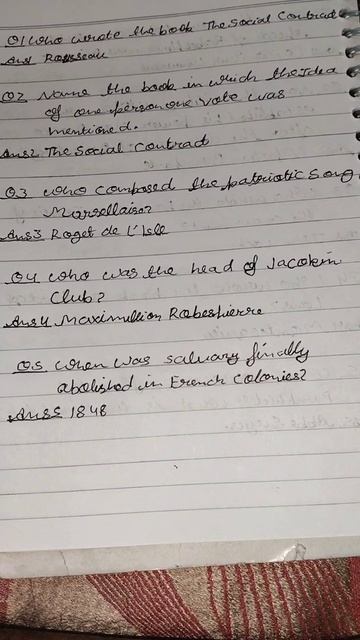 Q1 Who wrote the book The Social Contract
Ans1 Rousseau
Q2 Name the book in which the Idea
of one person one vote was
mentioned.
Ans2 The Social Contract
Q3 who composed the patriotic Song
Marsellaise?
Ans3 Roget de L'Isle
Q4 who was the head of Jacobin
Club?
Ans4 Maximillion Robespierre
Q5 When was salvary finally
abolished in French Colonies?
Ans5 1848